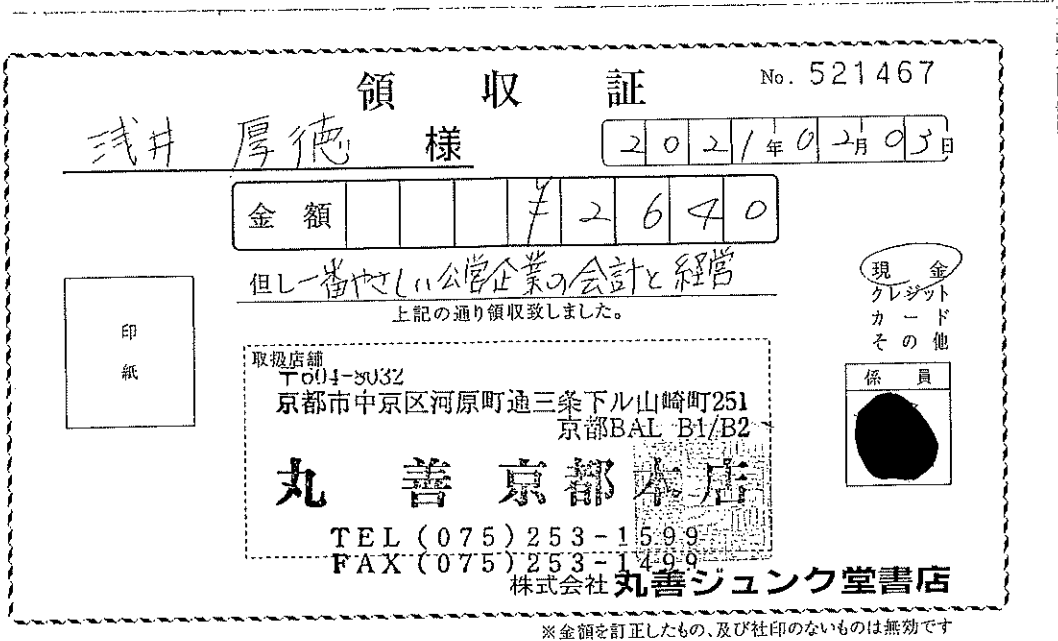 領収証
No. 521467
浅井 厚徳 様
2021年02月03日
金額 ¥2640
但し一番やさしい公営企業の会計と経営
上記の通り領収致しました。
現金
クレジット
カード
その他
印紙
係員
取扱店舗
〒604-8032
京都市中京区河原町通三条下ル山崎町251
京都BAL B1/B2
丸善京都本店
TEL (075)253-1599
FAX (075)253-1499
株式会社丸善ジュンク堂書店
※金額を訂正したもの、及び社印のないものは無効です